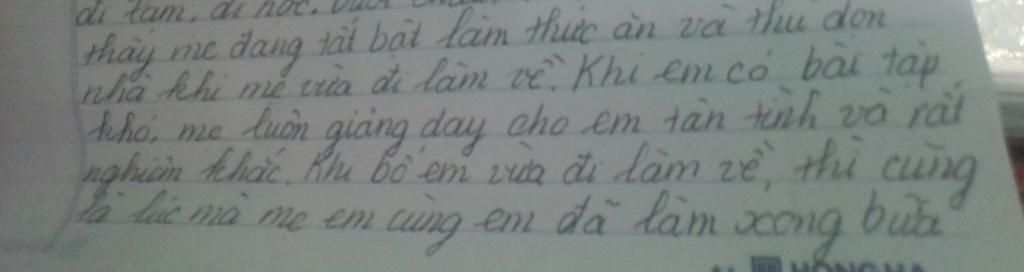 đi làm, đi học. Buổi
thấy mẹ đang tất bật làm thức ăn và thu dọn
nhà khi mẹ vừa đi làm về. Khi em có bài tập
khó, mẹ luôn giảng dạy cho em tận tình và rất
nghiêm khắc. Khi bố em vừa đi làm về, thì cũng
là lúc mà mẹ em cùng em đã làm xong bữa
HỒNG HÀ